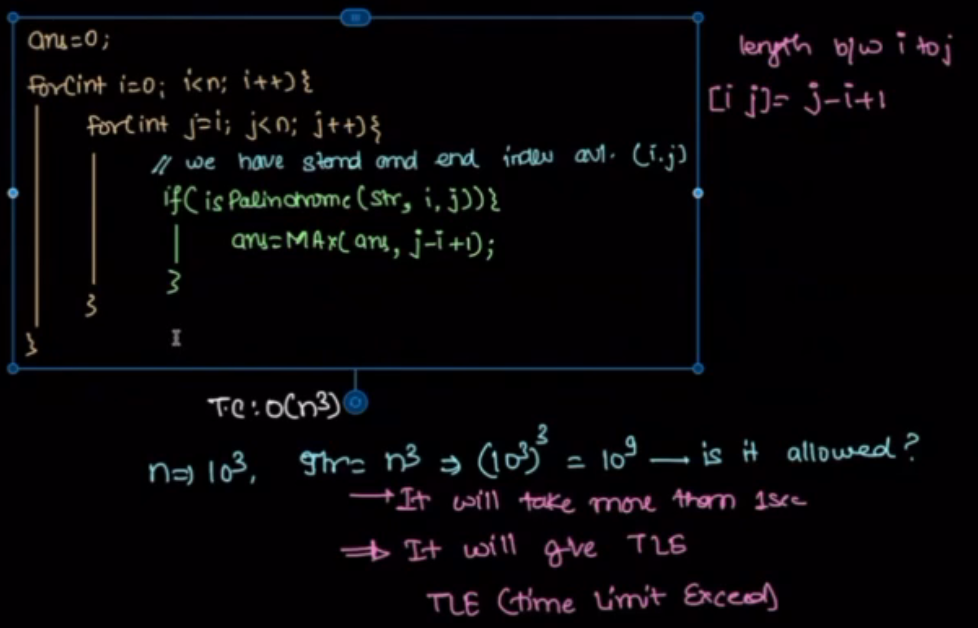 ans=0;
for(int i=0; i<n; i++){
for(int j=i; j<n; j++){
// we have stand and end index avl. (i,j)
if(isPalindrome(str, i, j)){
ans=MAx(ans, j-i+1);
}
}
}
length b/w i to j
[i j]= j-i+1
T.C: O(n³)
n⇒10³, Itr= n³ ⇒ (10³)³ = 10⁹ — is it allowed?
→ It will take more than 1sec
⇒ It will give TLE
TLE (time Limit Exceed)